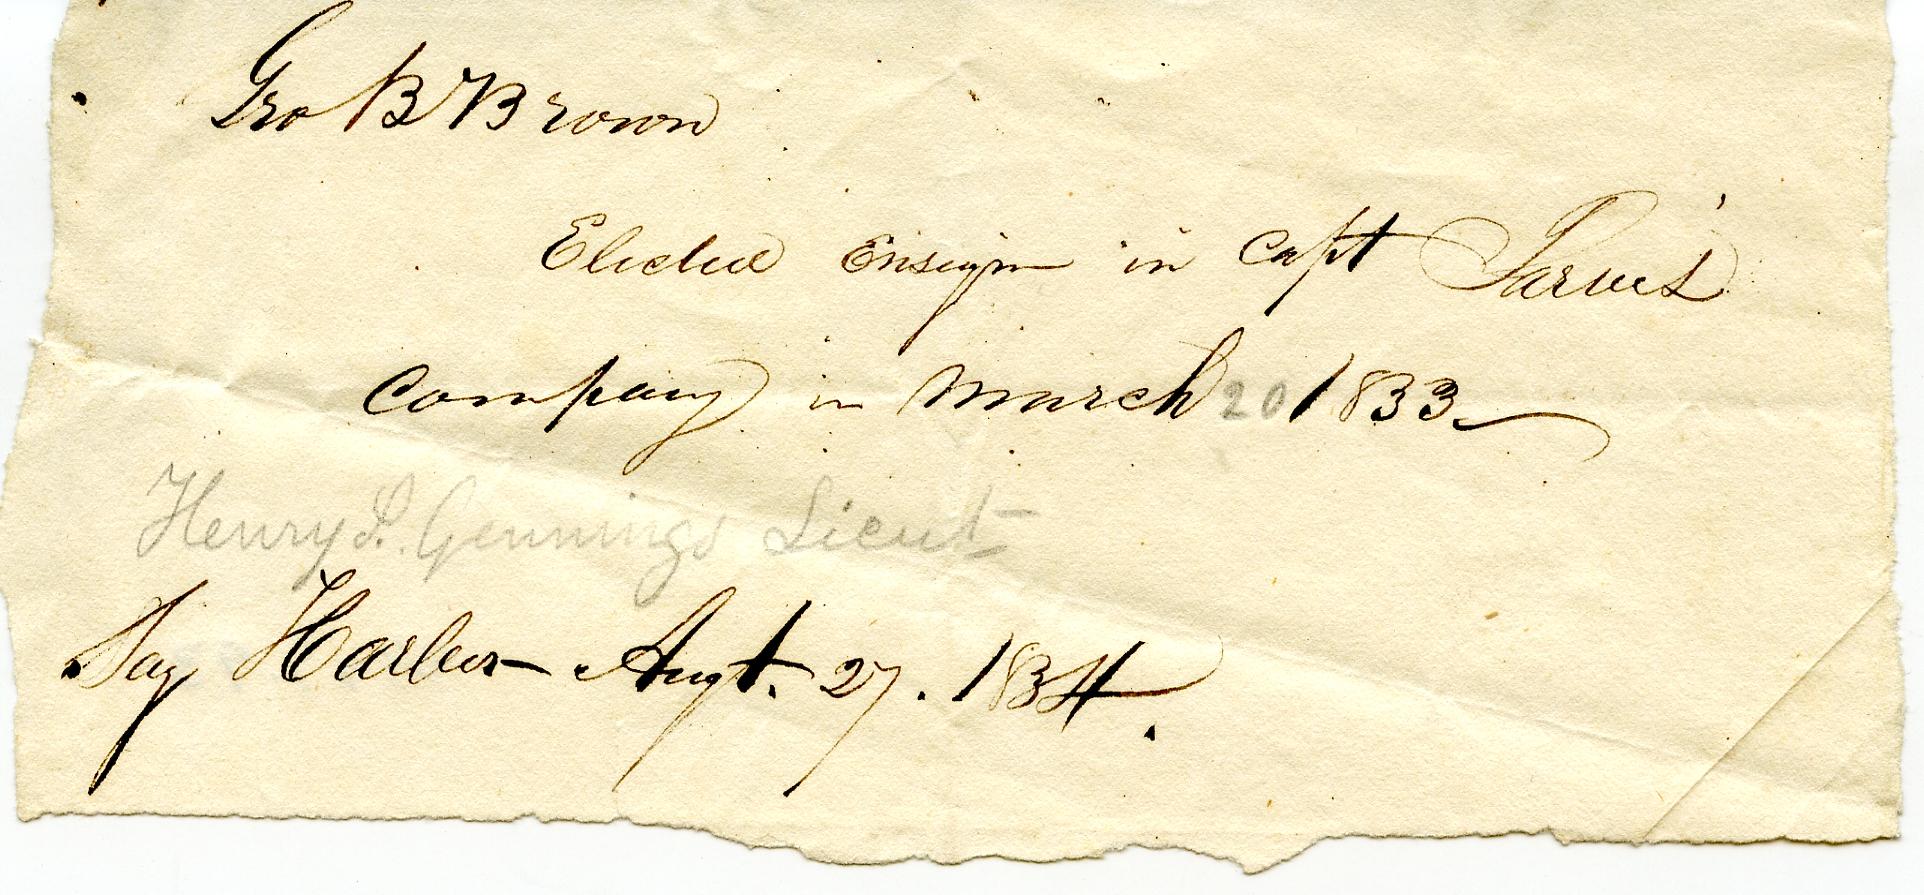 Geo B Brown
Elected Ensign in Capt Jarvis'
company in March 20 1833
Henry S. Gennings Lieut
Sag Harbor Augt. 27. 1834.